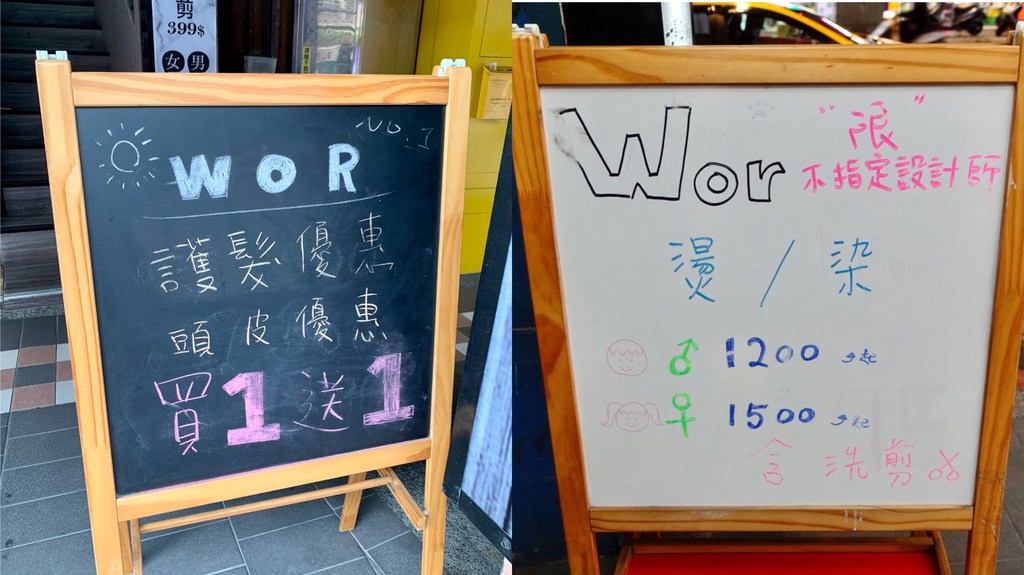 剪
399$
女 男
No.1
WOR
護髮優惠
頭皮優惠
買1送1
Wor
"限"
不指定設計師
燙/染
♂ 1200 起
♀ 1500 起
含 洗剪